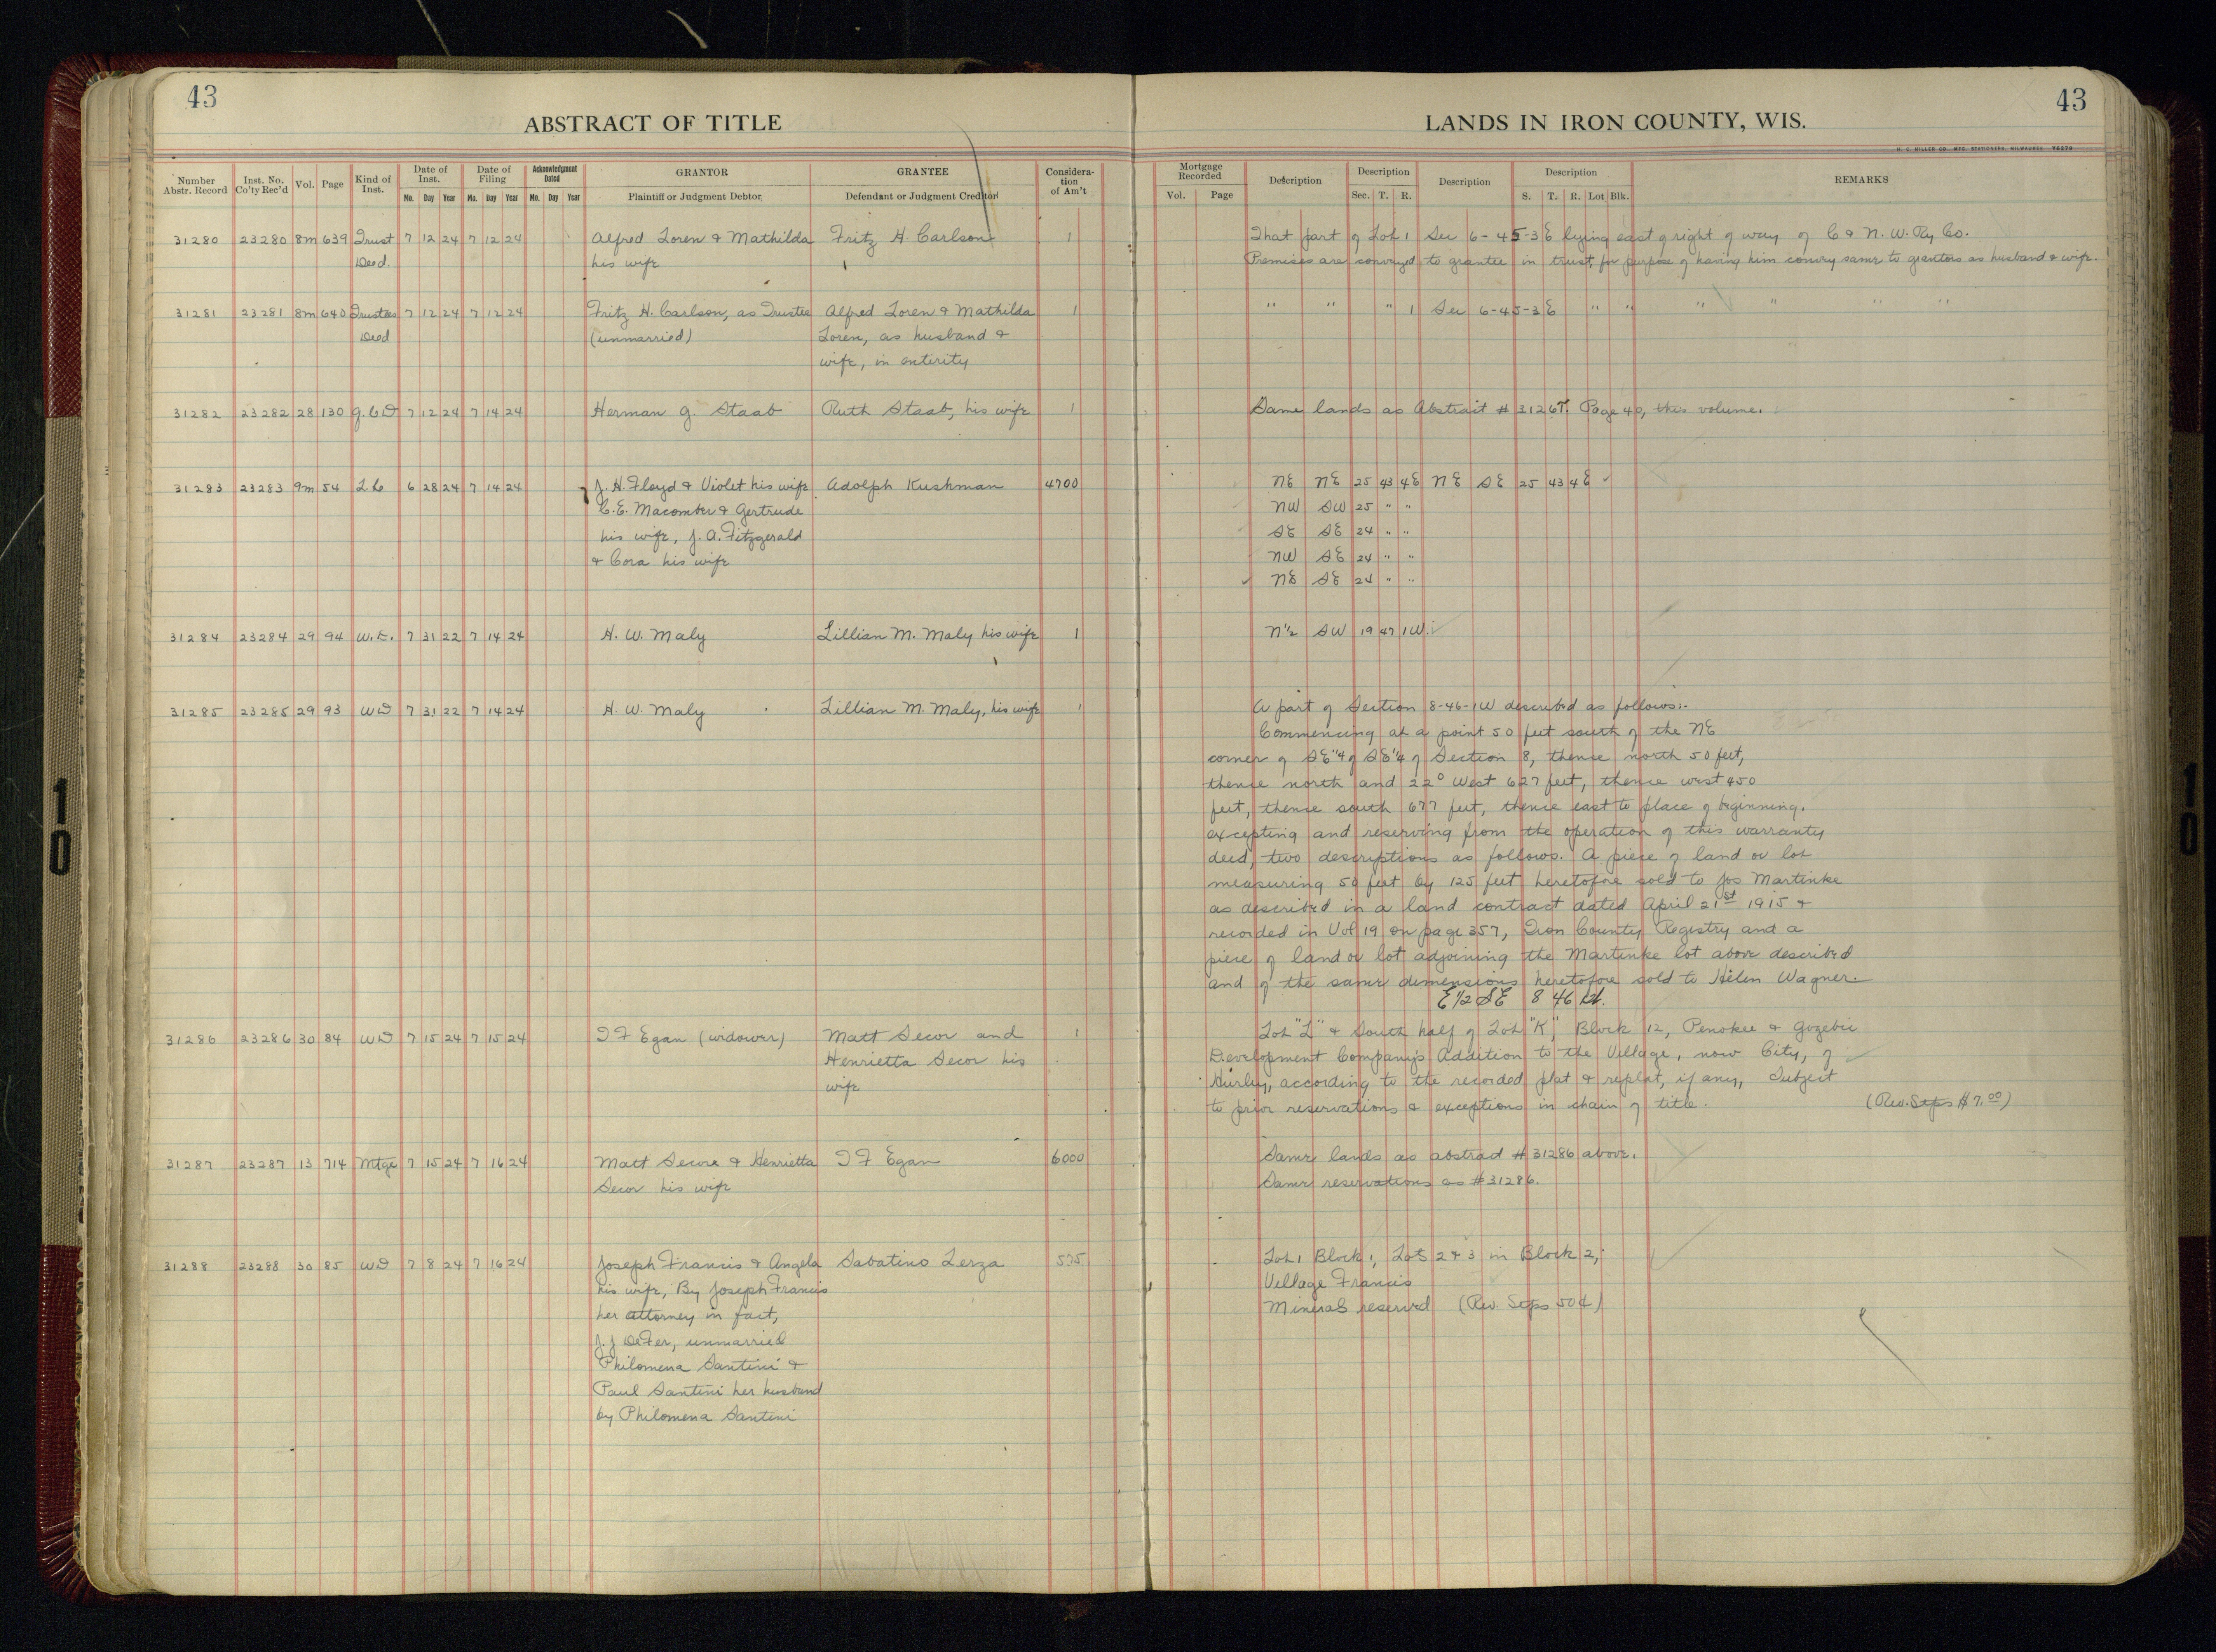 43
43
ABSTRACT OF TITLE
LANDS IN IRON COUNTY, WIS.
Number Abstr. Record Inst. No. Co'ty Rec'd Vol. Page Kind of Inst. Date of Inst. Mo. Day Year Date of Filing Mo. Day Year Acknowledgment Dated Mo. Day Year GRANTOR Plaintiff or Judgment Debtor GRANTEE Defendant or Judgment Creditor Consideration of Am't
Mortgage Recorded Vol. Page Description Description Sec. T. R. Description Description S. T. R. Lot Blk. REMARKS
31280 23280 8m 639 Trust 7 12 24 7 12 24 Alfred Loren & Mathilda Fritz H Carlson 1 That part of Lot 1 Sec 6-45-3E lying east of right of way of C & N. W. Ry Co.
Deed. his wife Premises are conveyed to grantee in trust, for purpose of having him convey same to grantors as husband & wife.
31281 23281 8m 640 Trustees 7 12 24 7 12 24 Fritz H. Carlson, as Trustee Alfred Loren & Mathilda 1 " " " 1 Sec 6-45-3E " " " " " "
Deed (unmarried) Loren, as husband &
wife, in entirity
31282 23282 28 130 Q.C.D 7 12 24 7 14 24 Herman G. Staab Ruth Staab, his wife 1 Same lands as Abstract # 31267. Page 40, this volume.
31283 23283 9m 54 L C 6 28 24 7 14 24 J. H. Floyd & Violet his wife Adolph Kushman 4700 NE NE 25 43 4E NE SE 25 43 4E
C. E. Macomber & Gertrude NW SW 25 " "
his wife, J. A. Fitzgerald SE SE 24 " "
& Cora his wife NW SE 24 " "
NE SE 24 " "
31284 23284 29 94 W.D. 7 31 22 7 14 24 H. W. Maly Lillian M. Maly, his wife 1 N½ SW 19 47 1W.
31285 23285 29 93 WD 7 31 22 7 14 24 H. W. Maly Lillian M. Maly, his wife 1 A part of Section 8-46-1W described as follows:-
Commencing at a point 50 feet south of the NE
corner of SE¼ of SE¼ of Section 8, thence north 50 feet,
thence north and 22° West 627 feet, thence west 450
feet, thence south 677 feet, thence east to place of beginning.
excepting and reserving from the operation of this warranty
deed, two descriptions as follows. A piece of land or lot
measuring 50 feet by 125 feet heretofore sold to Jos Martinke
as described in a land contract dated April 21st 1915 &
recorded in Vol 19 on page 357, Iron County Registry and a
piece of land or lot adjoining the Martinke lot above described
and of the same dimensions heretofore sold to Helen Wagner.
E½ SE 8 46 1W.
31286 23286 30 84 WD 7 15 24 7 15 24 I F Egan (widower) Matt Secor and 1 Lot "L" & South half of Lot "K", Block 12, Penokee & Gogebic
Henrietta Secor his Development Company's Addition to the Village, now City, of
wife Hurley, according to the recorded plat & replat, if any, Subject
to prior reservations & exceptions in chain of title. (Rev. Stps $7.00)
31287 23287 13 714 Mtge 7 15 24 7 16 24 Matt Secor & Henrietta I F Egan 6000 Same lands as abstract # 31286 above.
Secor his wife Same reservations as # 31286.
31288 23288 30 85 WD 7 8 24 7 16 24 Joseph Francis & Angela Sabatino Lerza 575 Lot 1 Block 1, Lots 2 & 3 in Block 2,
his wife, By Joseph Francis Village Francis
her attorney in fact, Minerals reserved (Rev. Stps 50¢)
J. J DeFer, unmarried
Philomena Santini &
Paul Santini her husband
by Philomena Santini
10
10